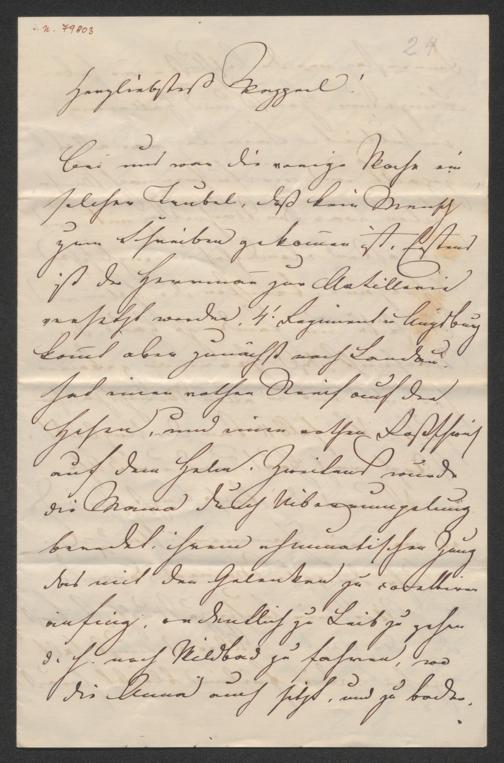 N. 79803
24
Herzliebstes Mopperl!
Bei uns war die vorige Woche ein
solcher Trubel, daß kein Mensch
zum Schreiben gekom̄en ist. Erstens
ist der Herrman̄ zur Artillerie
versetzt worden, 4. Regiment in Augsburg
kom̄t aber zunächst nach Landau.
hat einen rothen Streif auf den
Hosen, und einen rothen Roßschweif
auf dem Helm. Zweitens wurde
die Mama durch Überrumpelung
beredet ihrem rheumatischen Zeug
das mit den Gelenken zu
anfing, ordentlich zu Leib zu gehen
d. h. nach Wildbad zu fahren, wo
die Anna auch sitzt, und zu baden.